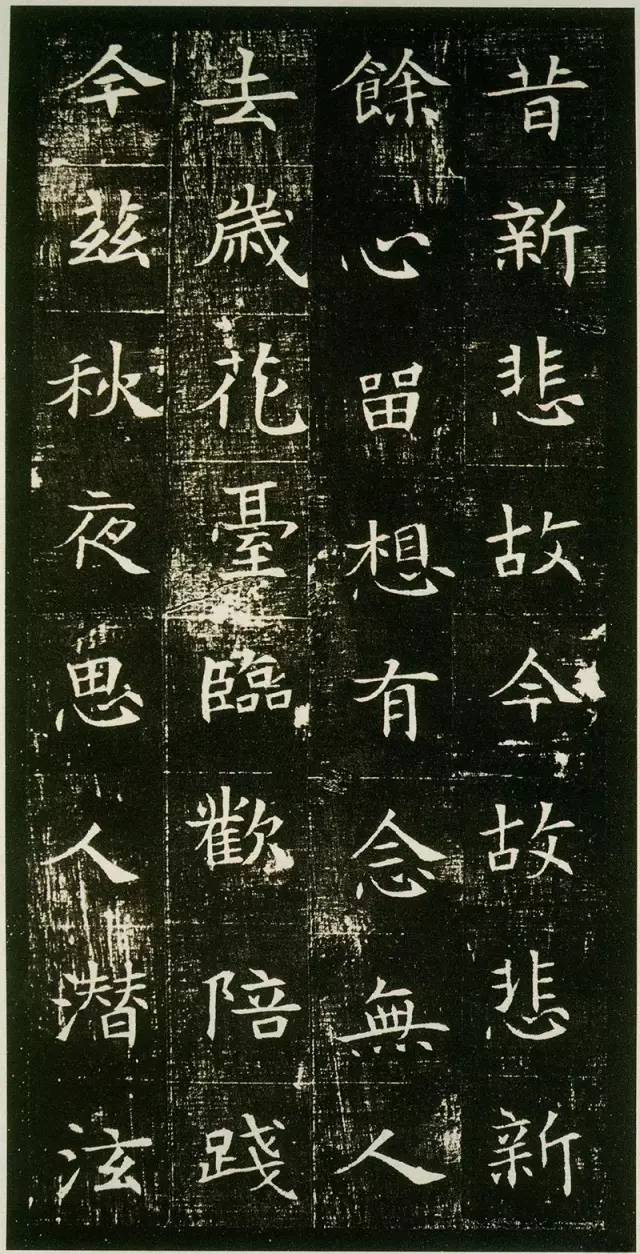 昔新悲故今故悲新
餘心留想有念無人
去歲花臺臨歡陪踐
今茲秋夜思人潜泫